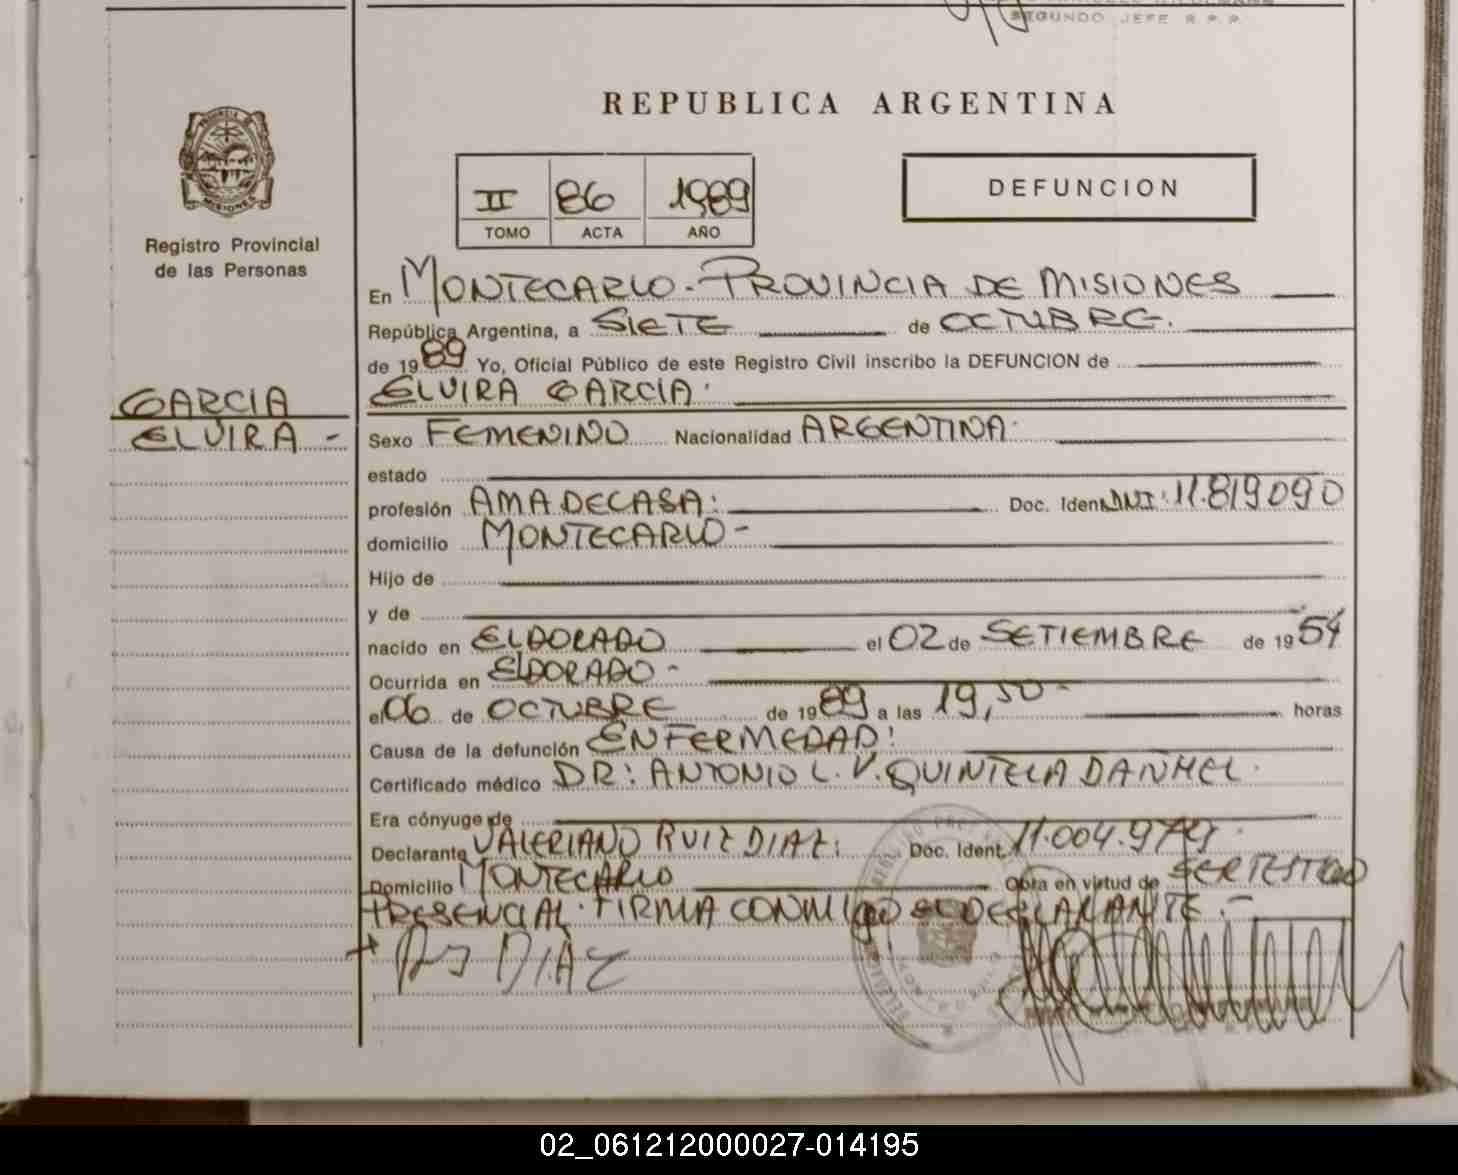 SEGUNDO JEFE R.P.P.
REPUBLICA ARGENTINA
PROVINCIA DE
MISIONES
Registro Provincial
de las Personas
II 86 1989
TOMO ACTA AÑO
DEFUNCION
En MONTECARLO - PROVINCIA DE MISIONES
República Argentina, a SIETE de OCTUBRE.
de 1989 Yo, Oficial Público de este Registro Civil inscribo la DEFUNCION de
ELVIRA GARCIA.
GARCIA
ELVIRA -
Sexo FEMENINO Nacionalidad ARGENTINA.
estado
profesión AMA DE CASA: Doc. Ident. DNI: 11.819090
domicilio MONTECARLO -
Hijo de
y de
nacido en ELDORADO el 02 de SETIEMBRE de 1954
Ocurrida en ELDORADO -
el 06 de OCTUBRE de 1989 a las 19,50 - horas
Causa de la defunción ENFERMEDAD:
Certificado médico DR: ANTONIO L. V. QUINTELA DANHEL.
Era cónyuge de
Declarante VALERIANO RUIZ DIAZ: Doc. Ident. 11.004.979.
Domicilio MONTECARLO Obra en virtud de SER TESTIGO
PRESENCIAL. FIRMA CONMIGO EL DECLARANTE. -
DIAZ
02_061212000027-014195